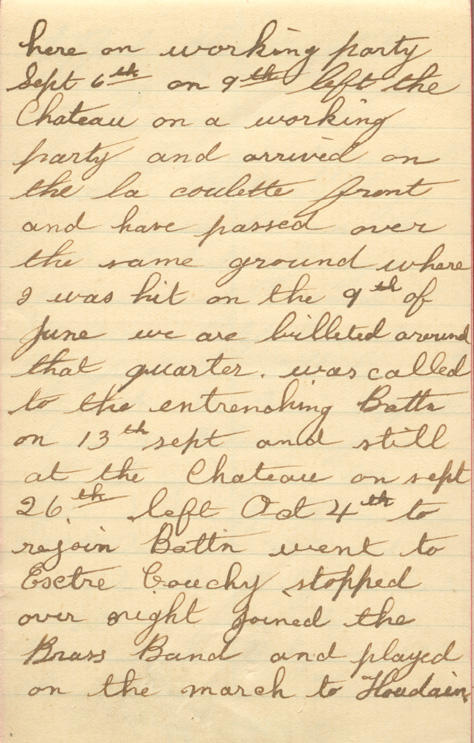 here on working party
Sept 6th on 9th left the
Chateau on a working
party and arrived on
the la coulette front
and have passed over
the same ground where
I was hit on the 9th of
June we are billeted around
that quarter. was called
to the entrenching Battn
on 13th sept and still
at the Chateau on sept
26th left Oct 4th to
rejoin Battn went to
Esctre Couchy stopped
over night joined the
Brass Band and played
on the march to Houdain